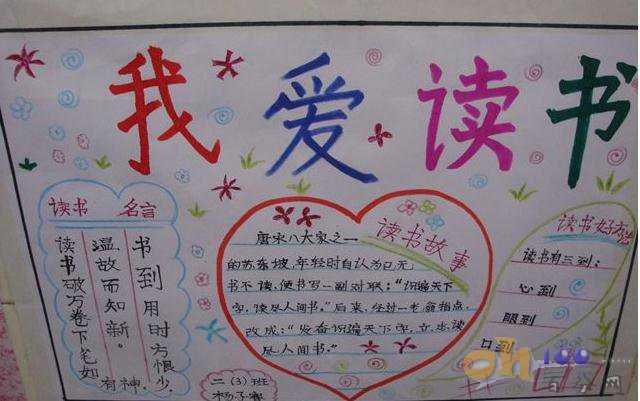 我爱读书
读书 名言
书到用时方恨少
温故而知新。
读书破万卷下笔如
有神
读书故事
唐宋八大家之一
的苏东坡,年轻时自认为已无
书不读,便书写一副对联:“识遍天下
字,读尽人间书。”后来,经过一老翁指点,
改成:“发奋识遍天下字,立志读
尽人间书。”
读书好方法
读书有三到:
心到
眼到
口到
二(3)班